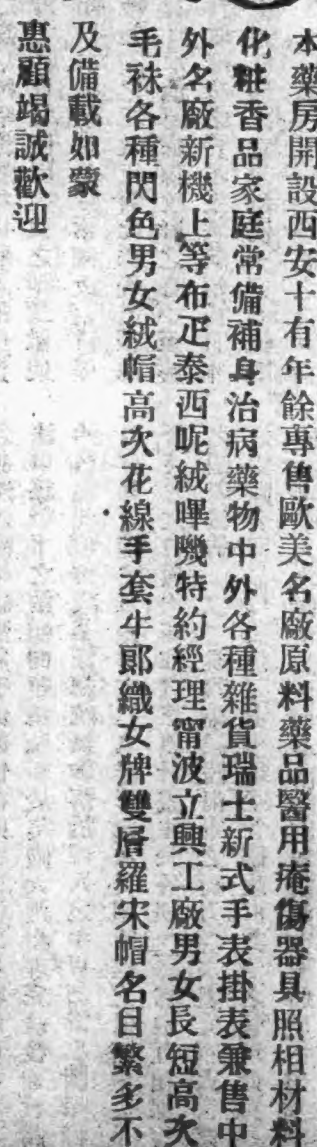 本藥房開設西安十有年餘專售歐美名廠原料藥品醫用痷傷器具照相材料
化粧香品家庭常備補身治病藥物中外各種雜貨瑞士新式手表掛表兼售中
外名廠新機上等布疋泰西呢絨嗶嘰特約經理甯波立興工廠男女長短高次
毛袜各種閃色男女絨帽高次花線手套牛郎織女牌雙層羅宋帽名目繁多不
及備載如蒙
惠顧竭誠歡迎